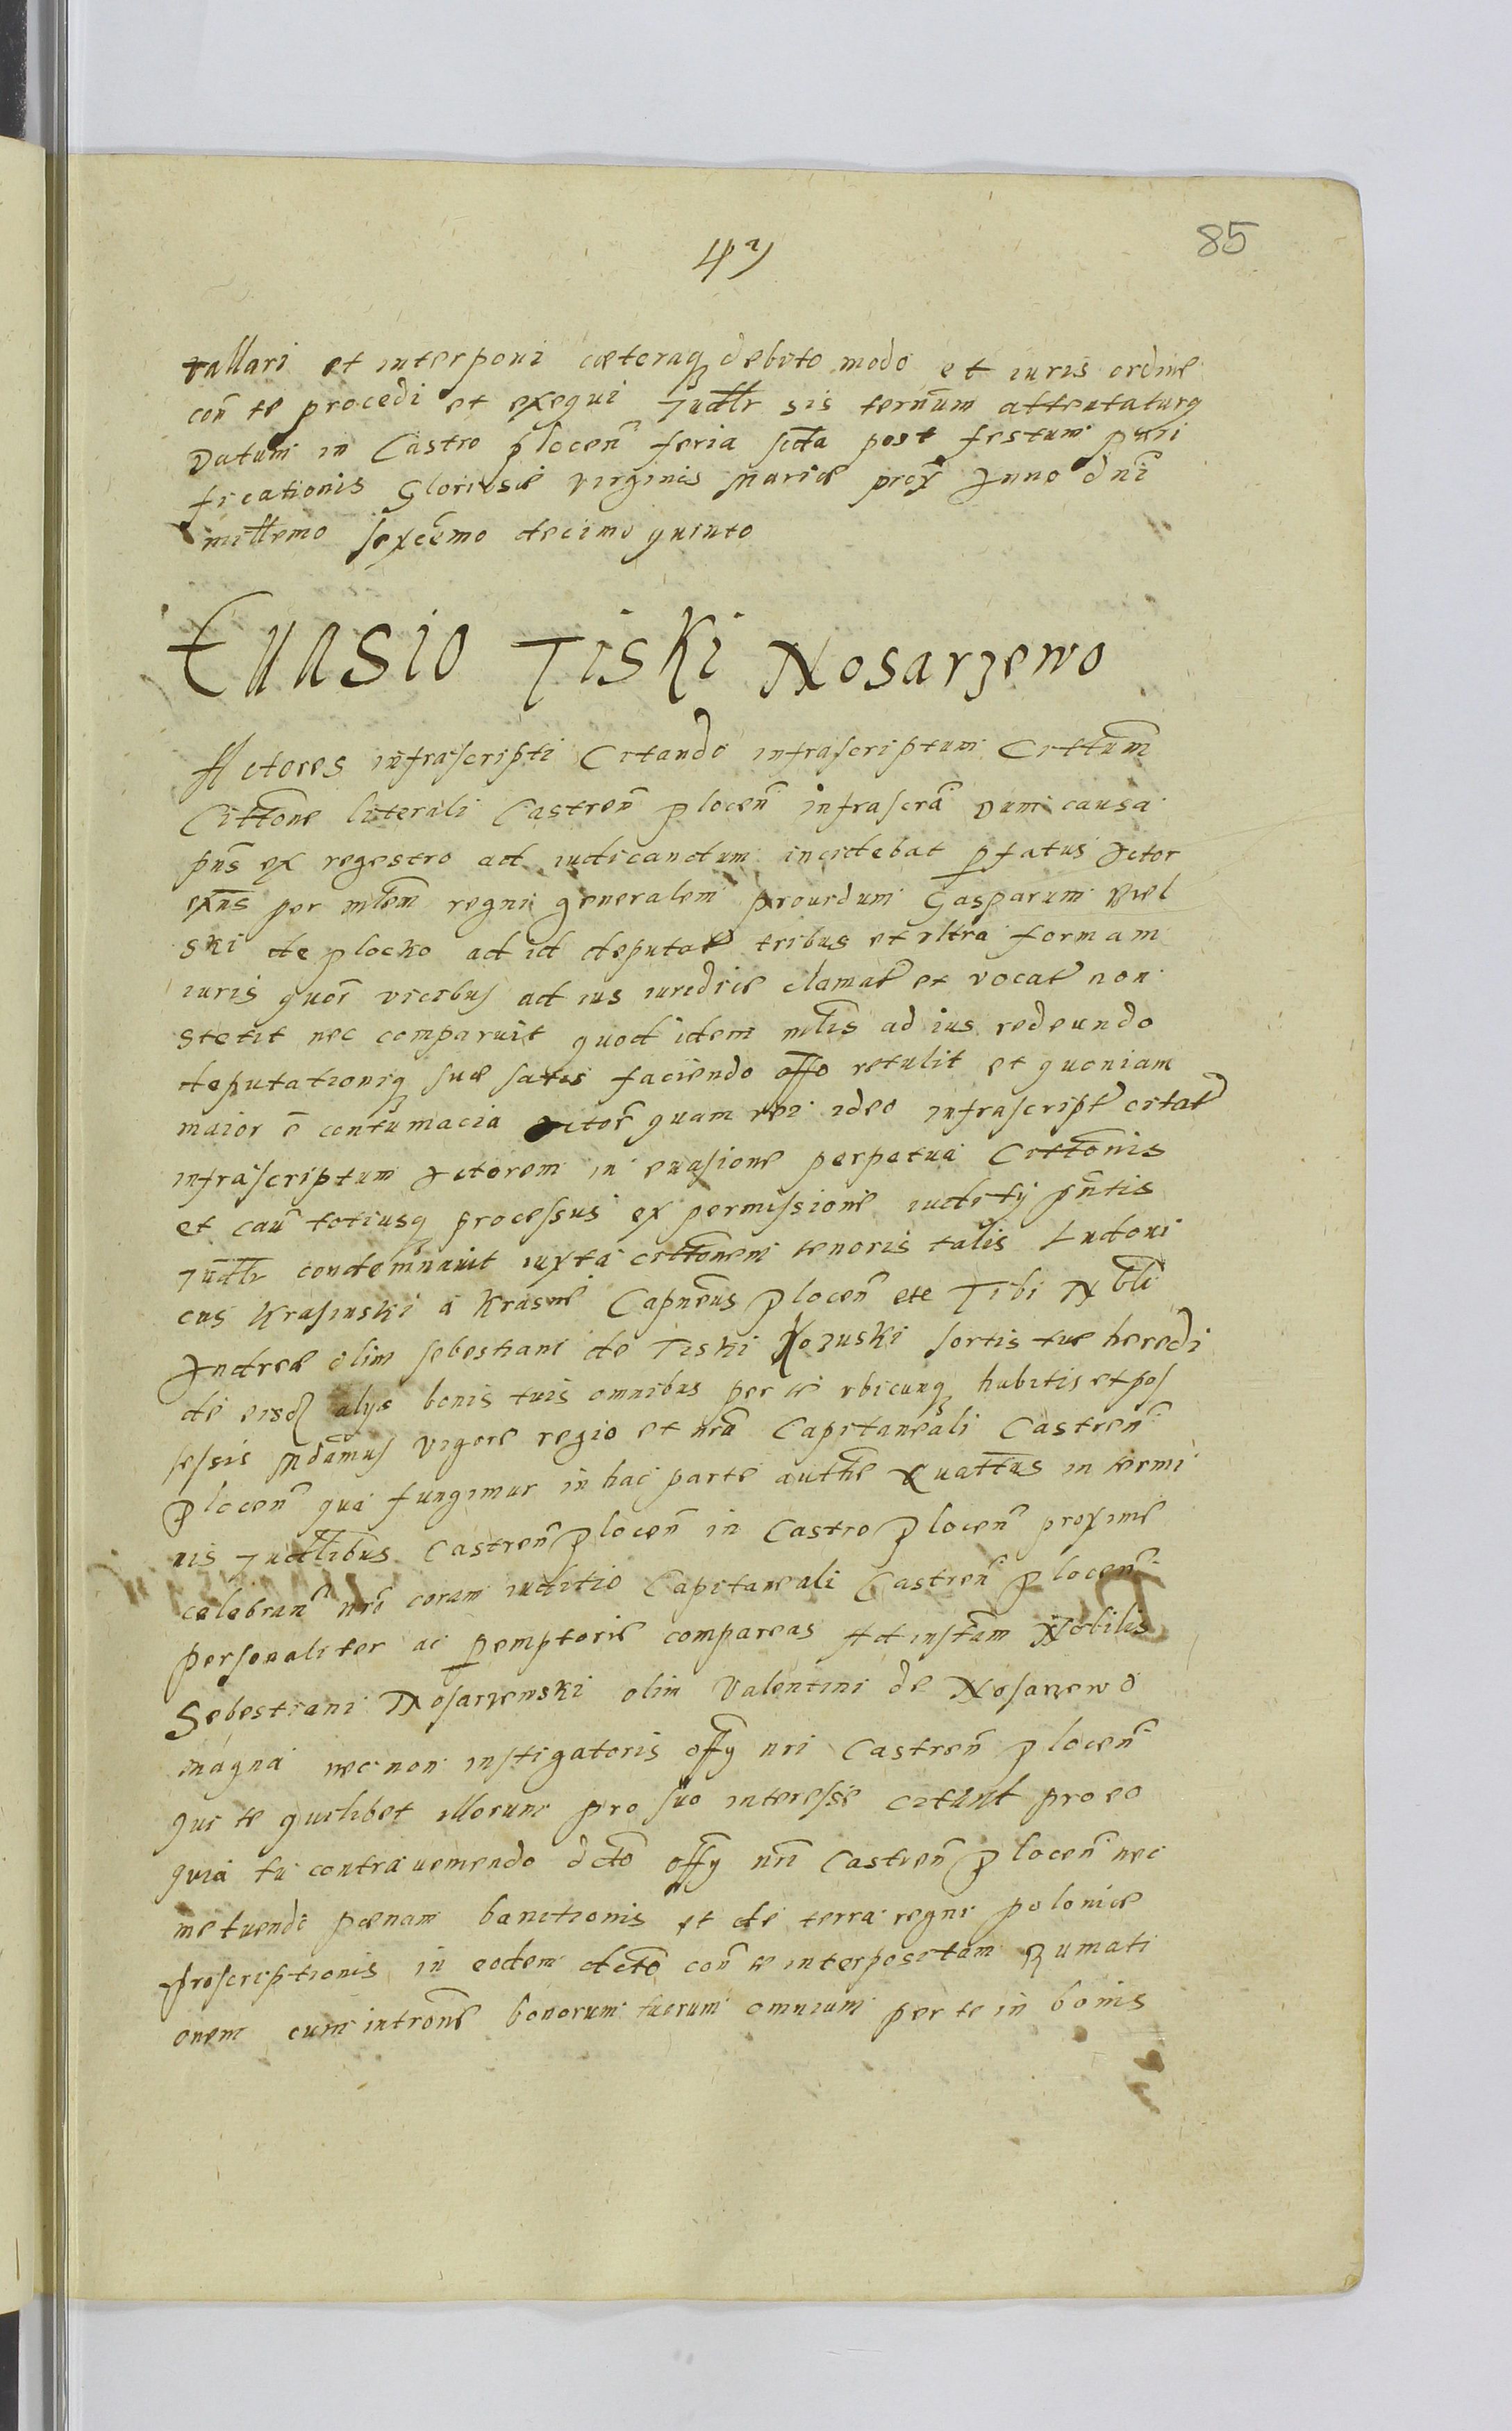 85
vallari et interponi cæteraq debito modo et iuris ordine
con̄ te procedi et exequi Judłlr sis ternūm attentaturq
Datum in Castro plocen̄ feria scda post festum puri
ficationis Gloriosæ virginis Mariæ prox̄ Anno dn̄i
millemo sexcēmo decimo quinto
Euasio Tiski Nosarzewo
Actores infrascripti Citando infrascriptum Cittum̄
Cittōne literali Castren̄ plocen̄ infrascrā Dum causa
pn̄s ex regestro ad iudicandum incidebat pfatus Actor
exn̄s per mlem̄ regni generalem prouidum Gasparum Viel
ski de plocko ad id deputat tribus et vltra formam
iuris quor̄ vicibus ad ius iuridice clamat et vocat non
stetit nec comparuit quod idem mlīs ad ius redeundo
deputationiq suæ satis faciendo offo retulit et quoniam
maior ē contumacia Actor̄ quam rei ideo infrascript citat
infrascriptum Actorem in euasione perpetua Cittōnis
et caū totiusq processus ex permissione iudicij pn̄tis
Judłlr condemnauit iuxta cittōnem tenoris talis Ludoui
cus Krasinski a Krasne Capnēus plocen̄ etc Tibi Nbli
Andreæ olim sebestiani de Tiski Kozuski sortis tuæ heredi
de eisd alys bonis tuis omnibus per te vbicunq habitis et pos
sessis Mdāmus vigore regio et nrā Capitaneali Castren̄
plocen̄ qua fungimur in hac parte authe Quattus in termi
nis Judłlibus Castren̄ plocen̄ in Castro plocen̄ proxime
celebran̄ nrō coram iuditio Capitaneali Castren̄ plocen̄
personaliter ac pemptorie compareas Ad instām Nobilis
Sebestiani Nosarzewski olim Valentini de Nosarzewo
magna nec non instigatoris offy nri Castren̄ plocen̄
qui te quilibet illorum pro suo interesse citant pro eo
quia tu contraueniendo dctō offy nrī Castren̄ plocen̄ nec
metuendo pœnam banitionis et de terra regni poloniæ
proscriptionis in eodem dctō con̄ te interpositam
onem cum intrōne bonorum tuorum omnium per te in bonis